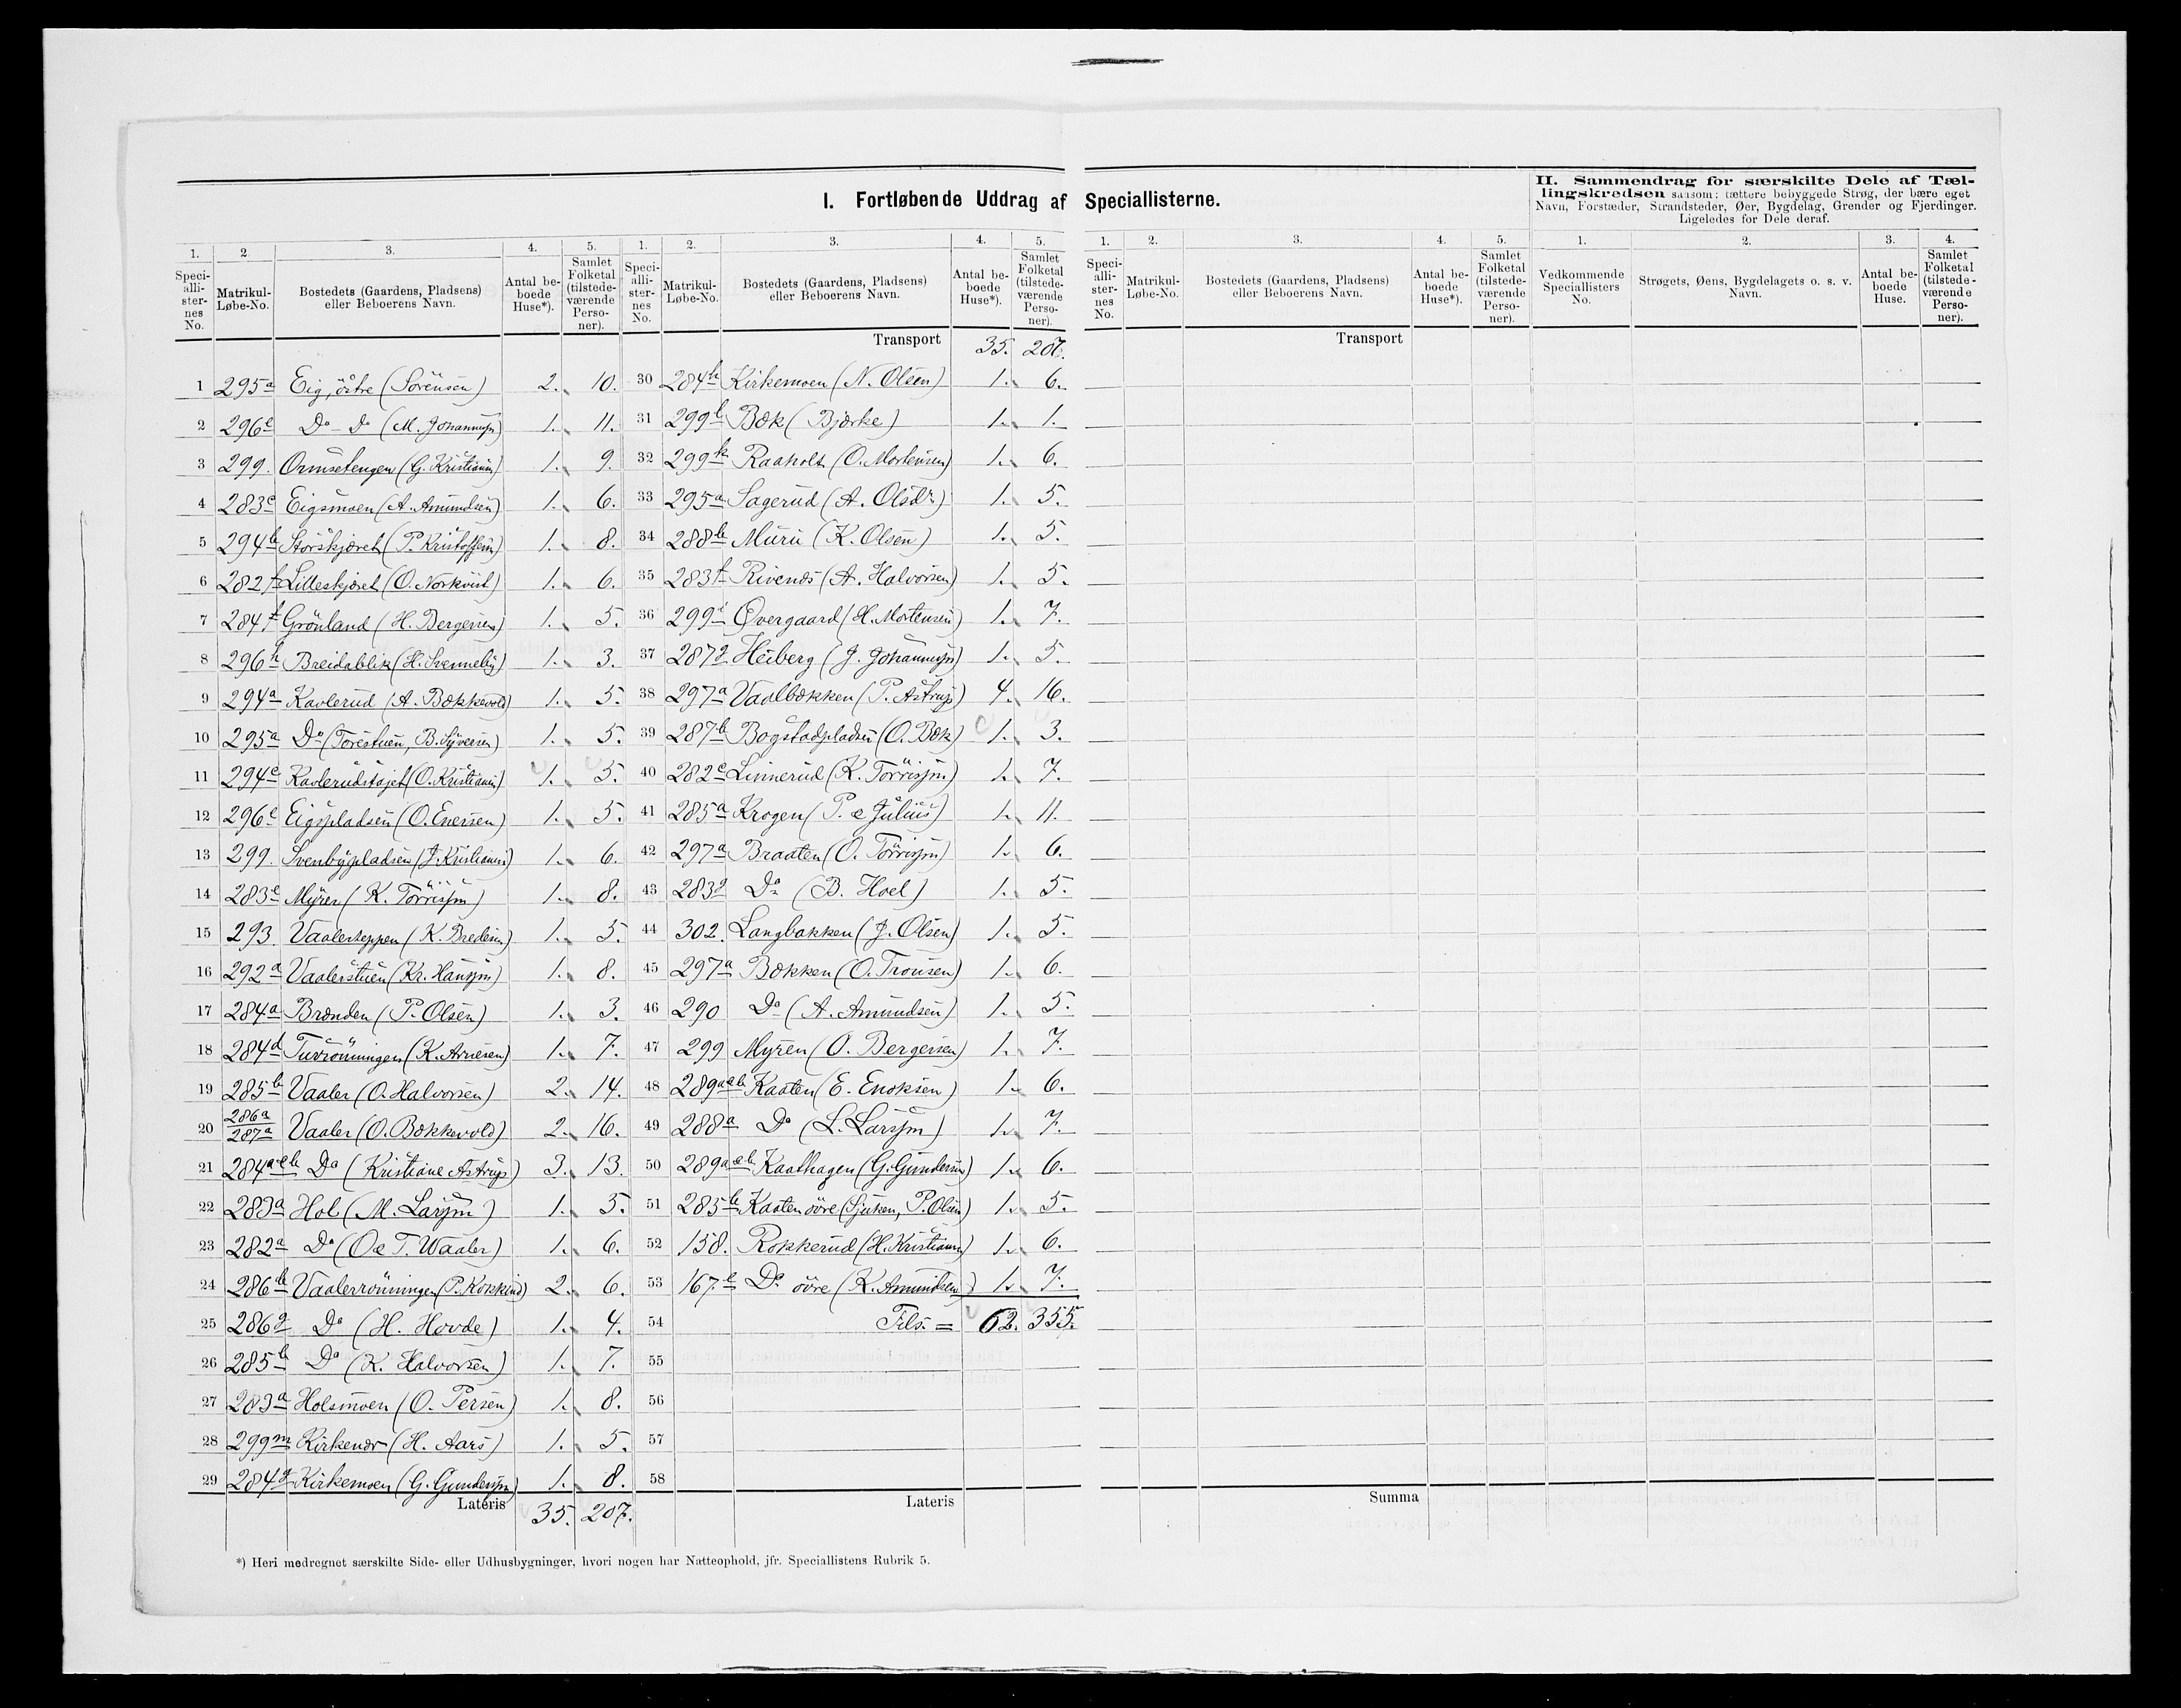 I. Fortløbende Uddrag af Speciallisterne.
II. Sammendrag for særskilte Dele af Tæl-
lingskredsen saasom: tættere bebyggede Strøg, der bære eget
Navn, Forstæder, Strandsteder, Øer, Bygdelag, Grender og Fjerdinger.
Ligeledes for Dele deraf.
1. 2. 3. 4. 5. 1. 2. 3. 4. 5. 1. 2. 3. 4. 5. 1. 2. 3. 4.
Speci-alli-ster-nes No. Matrikul-Løbe-No. Bostedets (Gaardens, Pladsens) eller Beboerens Navn. Antal be-boede Huse*). Samlet Folketal (tilstede-værende Perso-ner).
Speci-alli-ster-nes No. Matrikul-Løbe-No. Bostedets (Gaardens, Pladsens) eller Beboerens Navn. Antal be-boede Huse*). Samlet Folketal (tilstede-værende Perso-ner).
Speci-alli-ster-nes No. Matrikul-Løbe-No. Bostedets (Gaardens, Pladsens) eller Beboerens Navn. Antal be-boede Huse*). Samlet Folketal (tilstede-værende Perso-ner).
Vedkommende Speciallisters No. Strøgets, Øens, Bygdelagets o. s. v. Navn. Antal be-boede Huse. Samlet Folketal (tilstede-værende Perso-ner).
1 295a Eig, östre (Sörensen) 2. 10.
2 296c Do Do (M. Johannessen) 1. 11.
3 299. Ormsetengen (G. Kristiansen) 1. 9.
4 283c Eigsmoen (A. Amundsen) 1. 6.
5 294b Storskjæret (P. Kristoffersen) 1. 8.
6 282f Lilleskjæret (O. Norkvist) 1. 6.
7 284f Grönland (H. Bergersen) 1. 5.
8 296h Breidablik (H. Svenneby) 1. 3.
9 294a Kavlerud (A. Bækkevold) 1. 5.
10 295a Do (Torestuen, B. Syversen) 1. 5.
11 294c Kavlerudstøjet (O. Kristiansen) 1. 5.
12 296c Eigspladsen (O. Enersen) 1. 5.
13 299. Svenbypladsen (J. Kristiansen) 1. 6.
14 283e Myrer (K. Törrissen) 1. 8.
15 293. Vaalerteppen (K. Bredesen) 1. 5.
16 292a Vaalerstuen (Kr. Hanssen) 1. 8.
17 284a Brænden (P. Olsen) 1. 3.
18 284d Turrönningen (K. Arnesen) 1. 7.
19 285b Vaaler (O. Halvorsen) 2. 14.
20 286a 287a Vaaler (O. Bækkevold) 2. 16.
21 284a e b Do (Kristiane Astrup) 3. 13.
22 283a Hol (M. Larssen) 1. 5.
23 282a Do (O e T. Waaler) 1. 6.
24 286b Vaalerrönningen (P. Kokkind) 2. 6.
25 286g Do (H. Hovde) 1. 4.
26 285b Do (K. Halvorsen) 1. 7.
27 283a Holsmoen (O. Persen) 1. 8.
28 299m Kirkenær (H. Aars) 1. 5.
29 284g Kirkemoen (G. Gundersen) 1. 8.
Lateris 35. 207.
Transport 35. 207.
30 284h Kirkemoen (N. Olsen) 1. 6.
31 299l Bæk (Bjerke) 1. 1.
32 299k Raaholt (O. Mortensen) 1. 6.
33 295a Sagerud (A. Olsdr.) 1. 5.
34 288b Muru (K. Olsen) 1. 5.
35 283f Rivenæs (A. Halvorsen) 1. 5.
36 299i Øvergaard (H. Mortensen) 1. 7.
37 287g Heiberg (J. Johannessen) 1. 5.
38 297a Vaalbækken (P. Astrup) 4. 16.
39 287b Bogstadpladsen (O. Bæk) 1. 3.
40 282e Linnerud (K. Törrissen) 1. 7.
41 285a Krogen (P. e Julius) 1. 11.
42 297a Braaten (O. Törrissen) 1. 6.
43 283g Do (B. Hoel) 1. 5.
44 302. Langbakken (J. Olsen) 1. 5.
45 297a Bækken (O. Tronsen) 1. 6.
46 290 Do (A. Amundsen) 1. 5.
47 299 Myren (O. Bergersen) 1. 7.
48 289a e b Kaaten (E. Enoksen) 1. 6.
49 288a Do (L. Larssen) 1. 7.
50 289a e b Kaathagen (G. Gundersen) 1. 6.
51 285b Kaaten övre (Sjuken, P. Olsen) 1. 5.
52 158. Rokkerud (H. Kristiansen) 1. 6.
53 167.e Do övre (K. Amundsen) 1. 7.
54 Tils. = 62. 355.
55
56
57
58
Lateris
Transport
Summa
*) Heri medregnet særskilte Side- eller Udhusbygninger, hvori nogen har Natteophold, jfr. Speciallistens Rubrik 5.